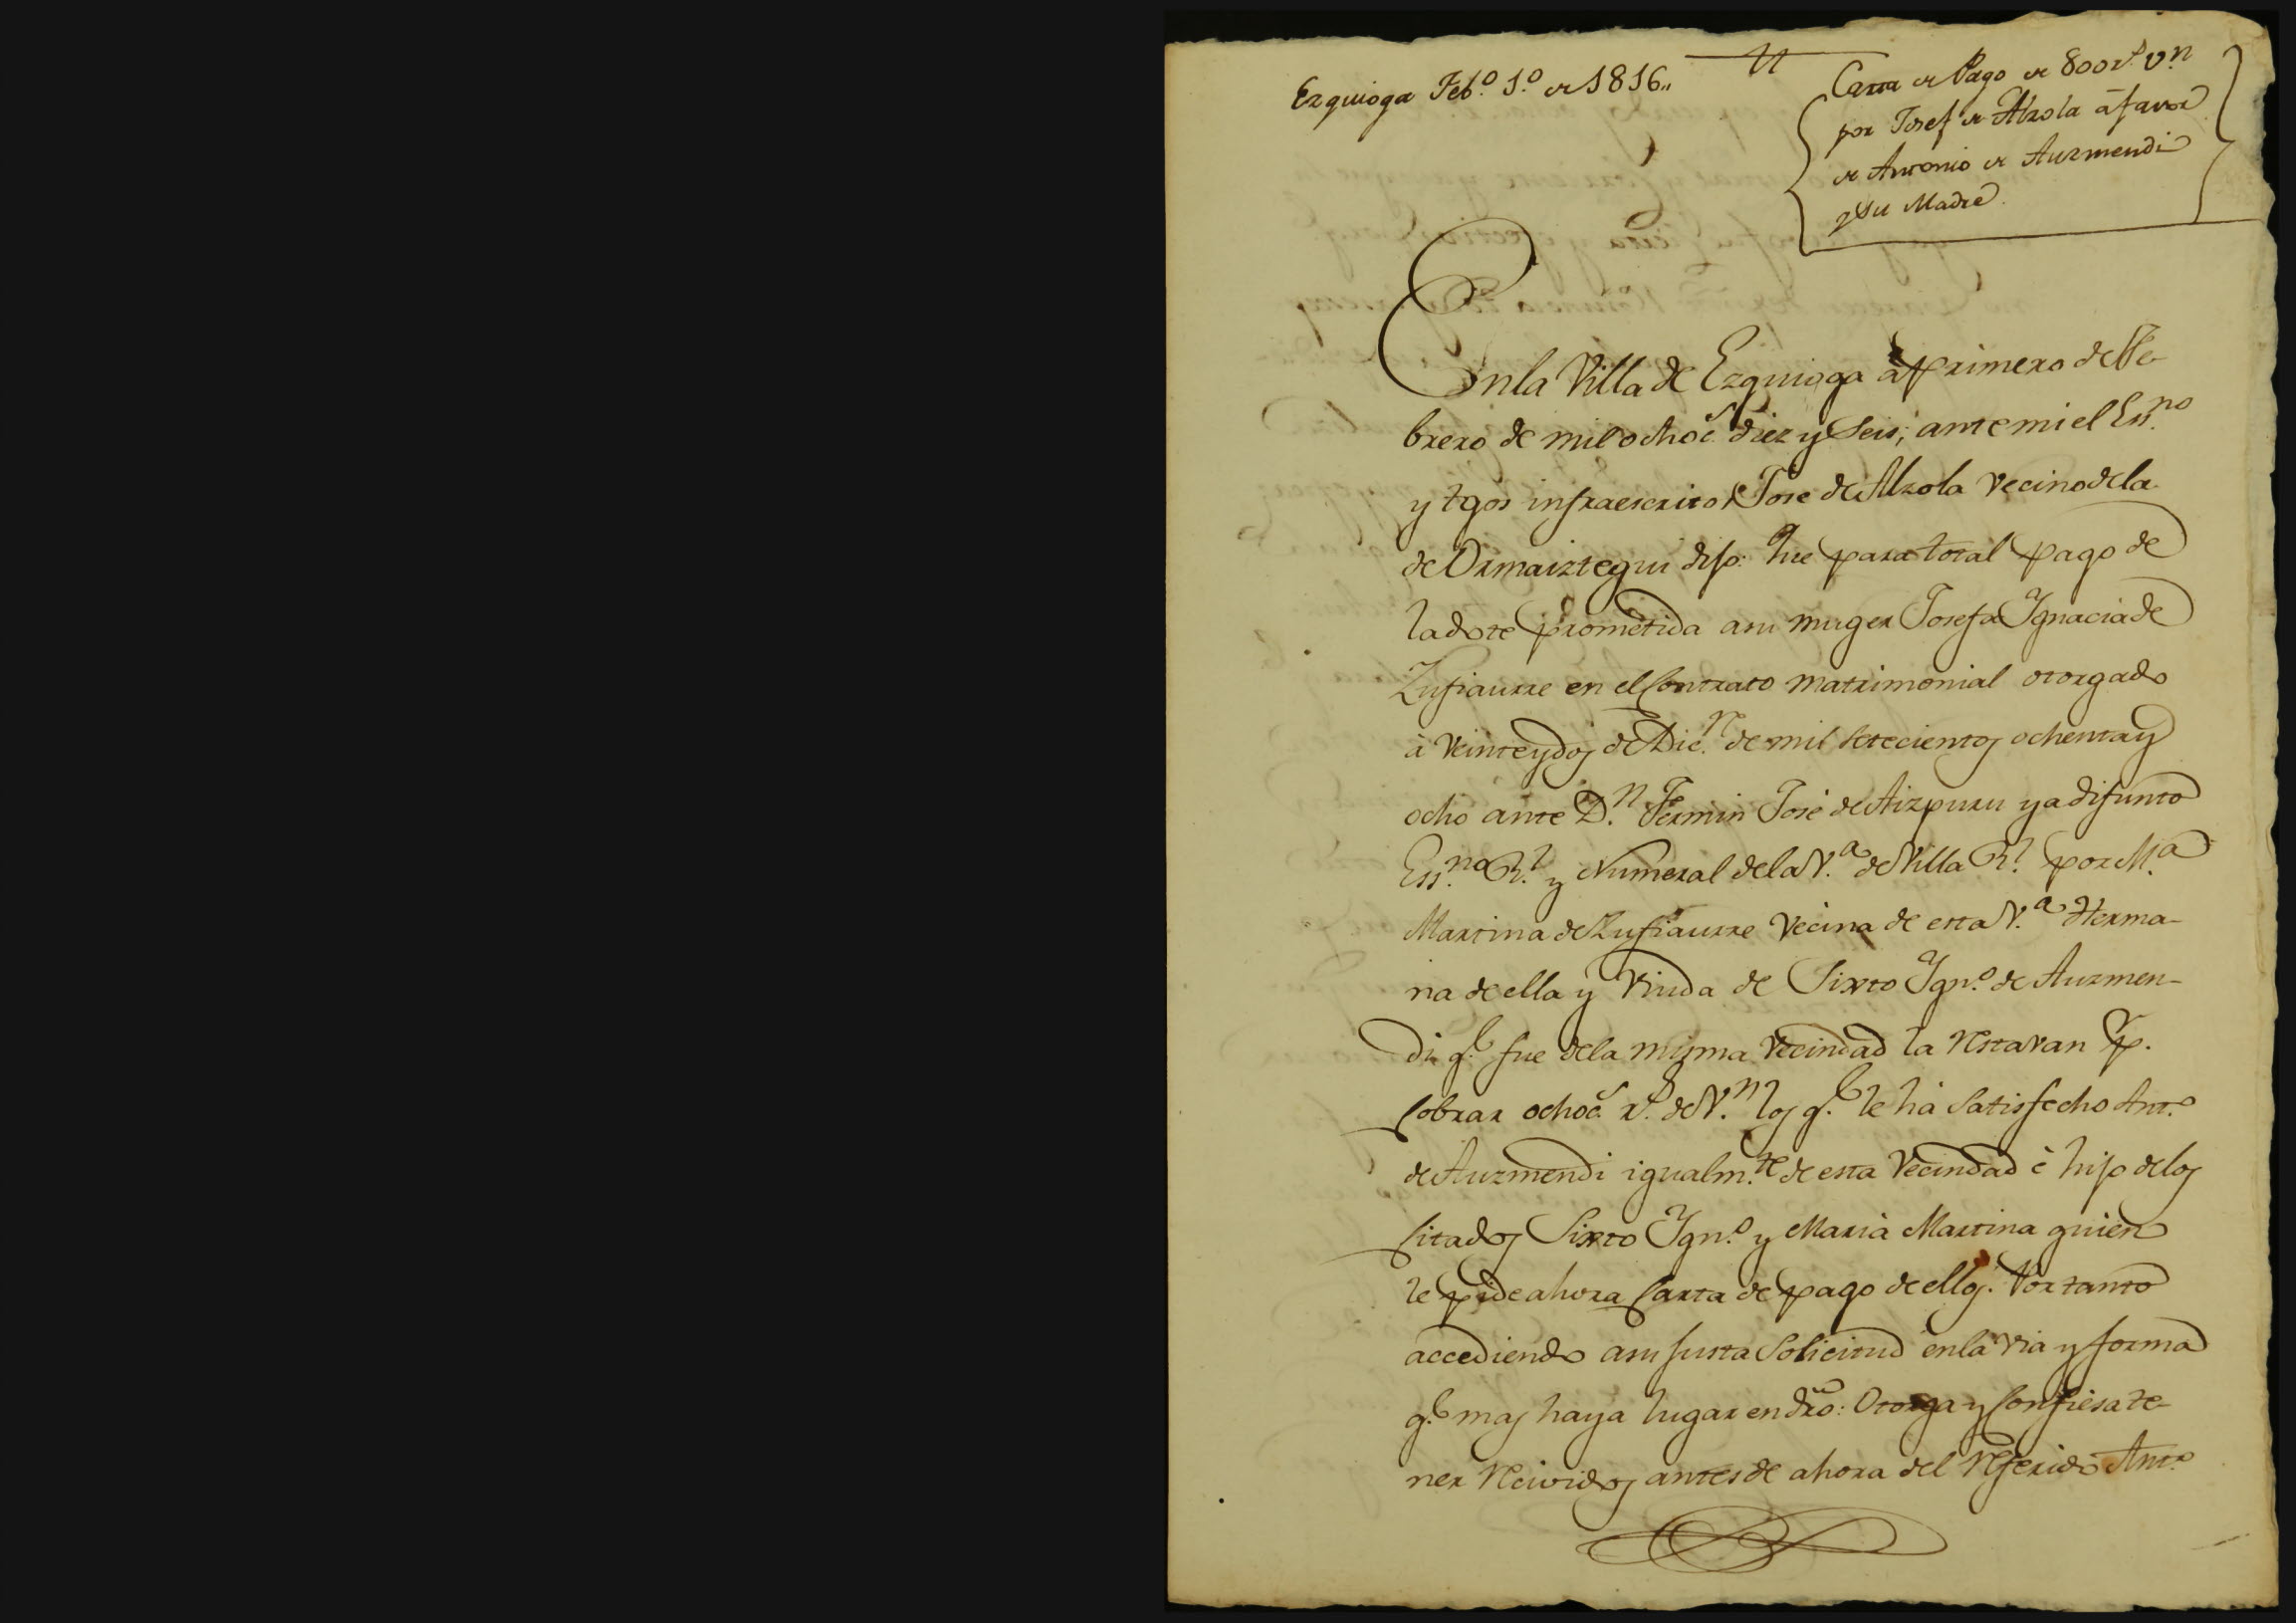 Ezquioga Feb.º 1.º de 1816,,
Carta de Pago de 800 r.s v.n
por Josef de Alzola à favor
de Antonio de Auzmendi
y su Madre.
En la Villa de Ezquioga à primero de Fe-
brero de mil ochoc.s diez y Seis; ante mi el Ess.no
y tgos infraescritos Jose de Alzola Vecino de la
de Ormaiztegui dijo: Que para total pago de
la dote prometida a su muger Josefa Ygnacia de
Zufiaurre en el Contrato matrimonial otorgado
à Veinte y dos de Dic.re de mil Setecientos ochenta y
ocho ante D.n Fermin José de Aizpuru ya difunto
Ess.no R.l y Numeral de la V.a de Villa R.l por M.a
Martina de Zufiaurre Vecina de esta V.a Herma-
na de ella y Viuda de Sixto Ygn.º de Auzmen-
di q.e fue de la misma Vecindad la restavan p.r
Cobrar ochoc.s r.s de V.n los q.e le hà Satisfecho Ant.º
de Auzmendi igualm.te de esta Vecindad è hijo de los
Citados Sixto Ygn.º y Maria Martina quien
le pide ahora Carta de pago de ellos. Por tanto
accediendo a su justa Solicitud en la via y forma
q.e mas haya lugar en dro: Otorga y Confiesa te-
ner recividos antes de ahora del referido Ant.º